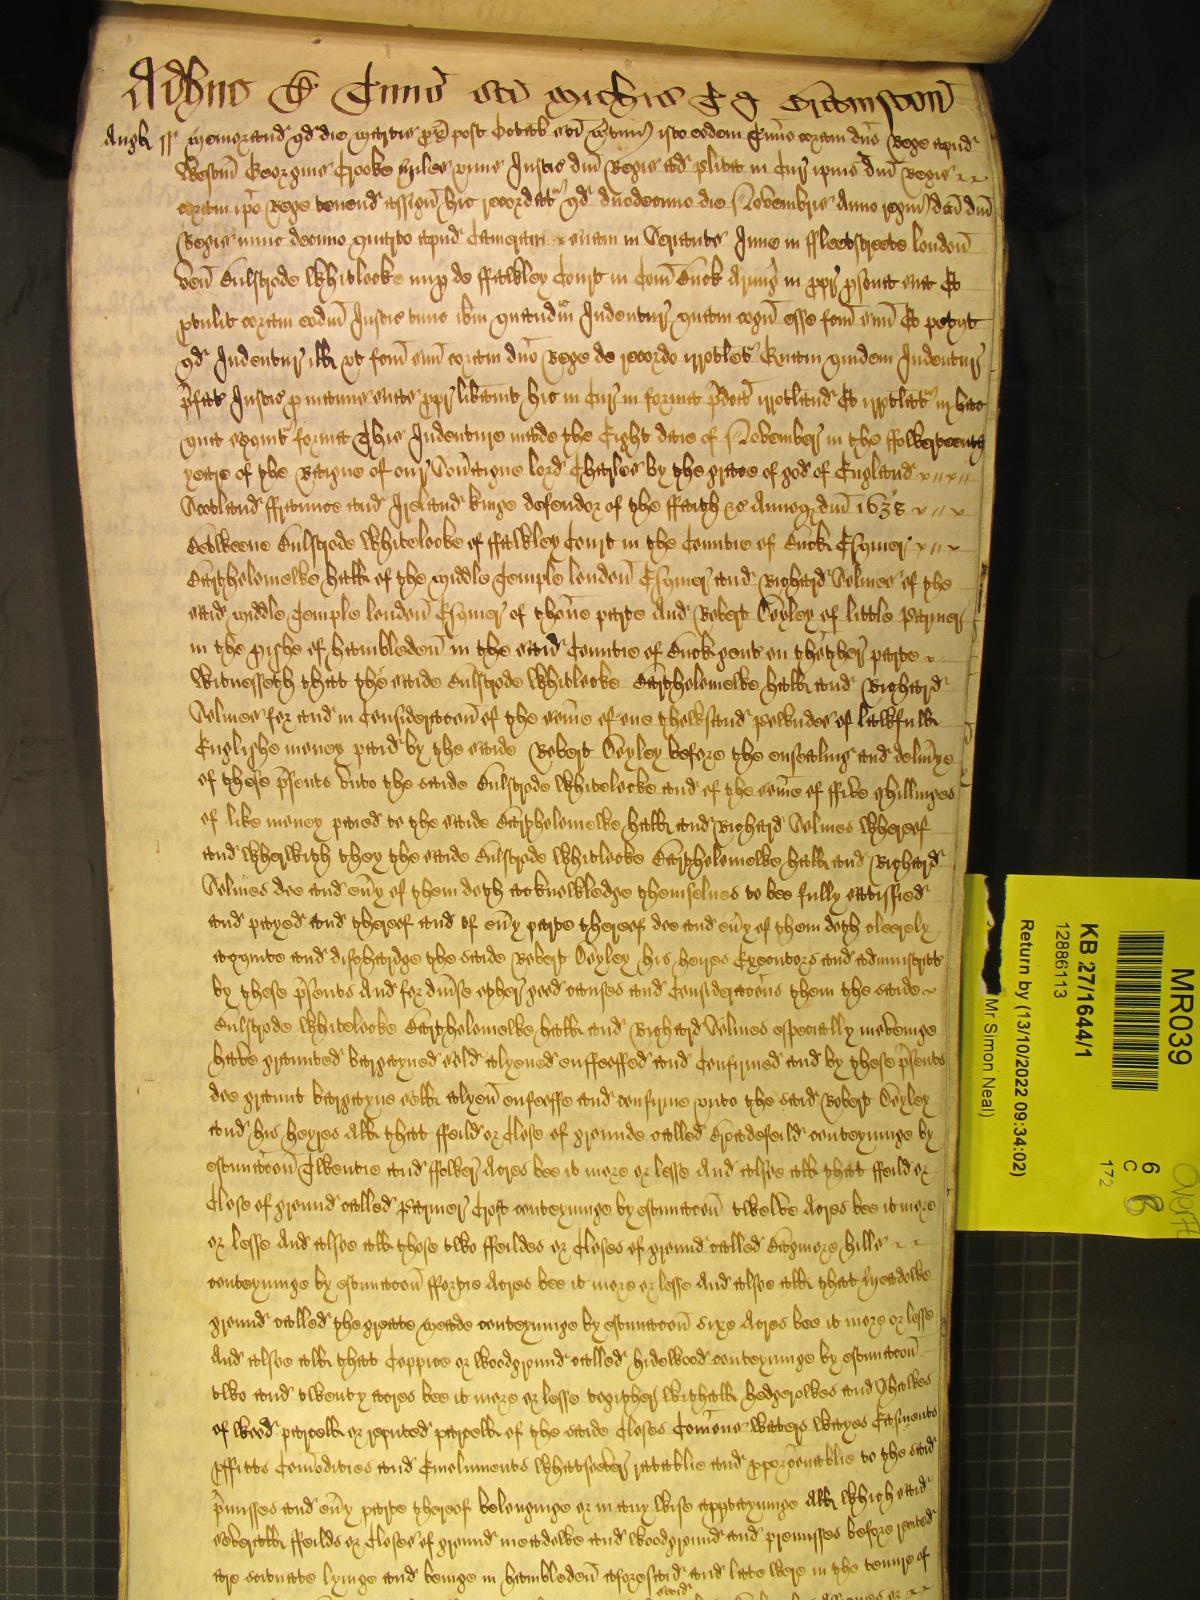 Adhuc de Termino sci Michis
Angl ss Memorand qd die Martis px post Octab sci Martini isto eodem Termino coram dno Rege apud
Westm Georgius Crooke miles unus Justic dni Regis ad plita in Cur ipius dni Regis
coram ipo Rege tenend assign hic recordat qd duodecimo die Novembris Anno regni dci dni
Regis nunc decimo quarto apud Cameram suam in Serjants Inne in ffleetstreete london
ven Bulstrode Whitlocke nup de ffawley Court in Com Buck Armig in ppr psona sua Et
ptulit coram eodm Justic tunc ibm quandam Indentur quam cogn esse fcm suu Et petijt
qd Indentur ill vt fcm suu coram dno Rege de recordo irrotlet Quam quidem Indentur
pfat Justic p manus suas ppr libavit hic in Cur in forma pdca irrotland Et irrotlat in hec
que sequnt forma This Indenture made the Eight daie of November in the ffowerteenth
yeare of the Raigne of our Sovaigne lord Charles by the grace of god of England
Scotland ffraunce and Ireland kinge defendor of the ffaith &c Annoq dni 1638
Betweene Bulstrode Whitelocke of ffawley Court in the Countie of Buck Esquier
Bartholomewe Hall of the Middle Temple london Esquier and Richard Solmes of the
said Middle Temple london Esquier of thone parte And Robert Doyley of little Parmer
in the pishe of Hambleden in the said Countie of Buck gent on thother parte
Witnesseth that the saide Bulstrode Whitlocke Bartholomewe Hall and Richard
Solmes for and in Consideracon of the some of one thowsand powndes of lawfull
Englishe money paid by the saide Robert Doyley before the ensealing and deliuye
of these psents vnto the saide Bulstrode Whitelocke and of the some of ffive shillinges
of like money paied to the saide Bartholomewe Hall and Richard Solmes Whereof
and wherwith they the saide Bulstrode Whitlocke Bartholomewe Hall and Richard
Solmes doe and euy of them doth acknowledge themselues to bee fully satisfied
and payed and thereof and of euy parte thereof doe and euy of them doth cleerely
acquite and discharge the saide Robert Doyley his heires Executors and administrat
by these psents And for diuse other good causes and Consideracons them the saide
Bulstrode Whitelocke Bartholomewe Hall and Richard Solmes especially moveinge
have graunted bargayned sold alyened enffeoffed and Confirmed and by these psents
doe graunt bargayne sell alyen enfeoffe and confirme vnto the said Robert Doyley
and his heyres All that ffeild or Close of grounde called Broadefeild conteyninge by
estimacon Twentie and ffower Acres bee it more or lesse And alsoe all that ffeild or
Close of ground called Parmer Croft conteyninge by estimacon twelve Acres bee it more
or lesse And alsoe all those two ffeildes or Closes of ground called Bagmore hille
conteyninge by estimacon ffortie Acres bee it more or lesse And alsoe all that Meadowe
ground called the greate Meade conteyninge by estimacon sixe Acres bee it more or lesse
And alsoe all that Coppice or woodground called hidewood conteyninge by estimacon
two and twenty acres bee it more or lesse togither withall hedgerowes and Shawes
of wood parcell or reputed parcell of the saide Closes Comons waters wayes Easments
pffitts Comodities and Emolumentes whatsoever rateablie and pporconablie to the said
pmisses and euy parte thereof belonginge or in any wise apptayninge All which said
severall ffeildes or Closes of ground meadowe and woodground and premisses before recited
are scituate lyinge and beinge in Hambleden aforesaid and late were in the tenure of
said
MR039
KB 27/1644/1
12886113
Return by (13/10/2022 09:34:02)
Mr Simon Neal)
6
C
172
6